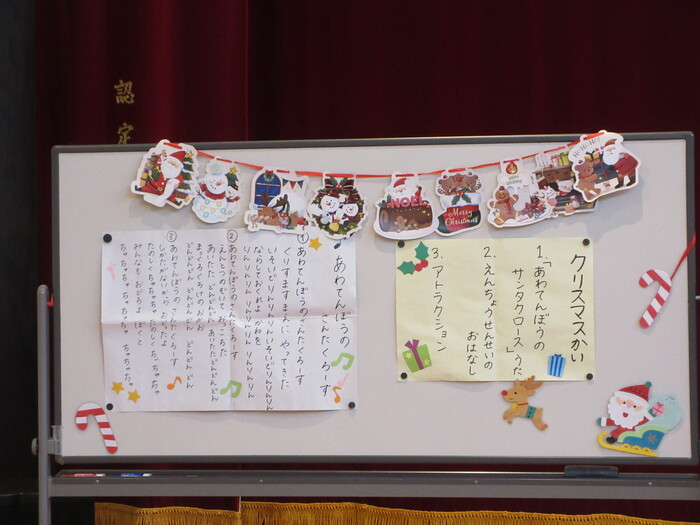 認定
NOEL
Merry Christmas
HO! HO! HO!
クリスマスかい
1.「あわてんぼうの
サンタクロース」うた
2.えんちょうせんせいの
おはなし
3.アトラクション
あわてんぼうの
さんたくろーす
①あわてんぼうのさんたくろーす
くりすますまえに やってきた
いそいでりんりんりん いそいでりんりんりん
ならしておくれよ かねを
りんりんりん りんりんりん りんりんりん
②あわてんぼうのさんたくろーす
えんとつのぞいて おっこちた
あいたた どんどんどん あいたた どんどんどん
まっくろくろけの おかお
どんどんどん どんどんどん どんどんどん
③あわてんぼうの さんたくろーす
しかたがないから おどったよ
たのしくちゃちゃちゃ たのしくちゃちゃちゃ
みんなも おどろよ ぼくと
ちゃちゃちゃ ちゃちゃちゃ ちゃちゃちゃ